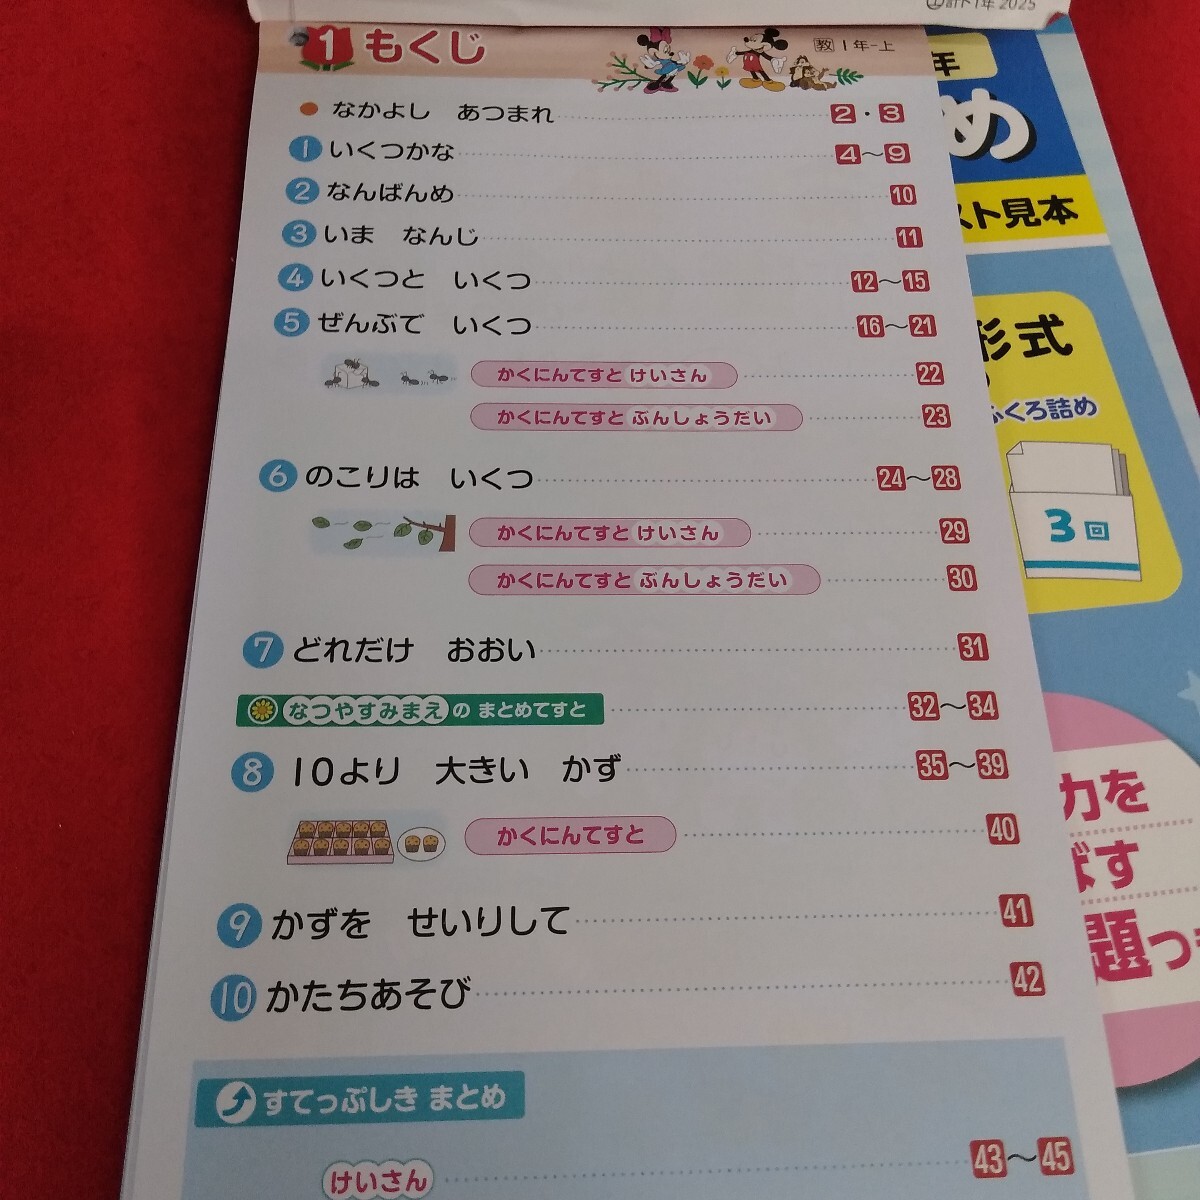 計ド1年 2025
1 もくじ
教 1年-上
なかよし あつまれ 2・3
1 いくつかな 4〜9
2 なんばんめ 10
3 いま なんじ 11
4 いくつと いくつ 12〜15
5 ぜんぶで いくつ 16〜21
かくにんてすと けいさん 22
かくにんてすと ぶんしょうだい 23
6 のこりは いくつ 24〜28
かくにんてすと けいさん 29
かくにんてすと ぶんしょうだい 30
7 どれだけ おおい 31
なつやすみまえの まとめてすと 32〜34
8 10より 大きい かず 35〜39
かくにんてすと 40
9 かずを せいりして 41
10 かたちあそび 42
すてっぷしき まとめ
けいさん 43〜45
年
め
スト見本
形式
ふくろ詰め
3回
力を
ばす
題つき